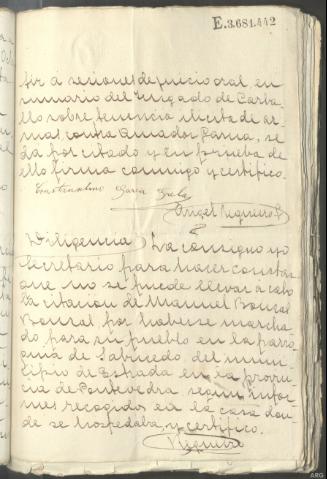 E.3.681.442
tir a sesiones de juicio oral en
sumario del Juzgado de Carba
llo sobre tenencia ilicita de ar
mas contra Amador Parma, se
da por citado y en prueba de
ello firma conmigo y certifico.
Constantino Garcia
Angel Regueiro
Diligencia) La consigno yo
Secretario para hacer constar
que no se puede llevar a cabo
la citacion de Manuel Bouzal
Bouzal por haberse marcha
do para su pueblo en la parro
quia de Sabucedo del muni
cipio de Estrada en la provin
cia de Pontevedra segun infor
mes recogidos en la casa don
de se hospedaba, y certifico.
Regueiro
ARG